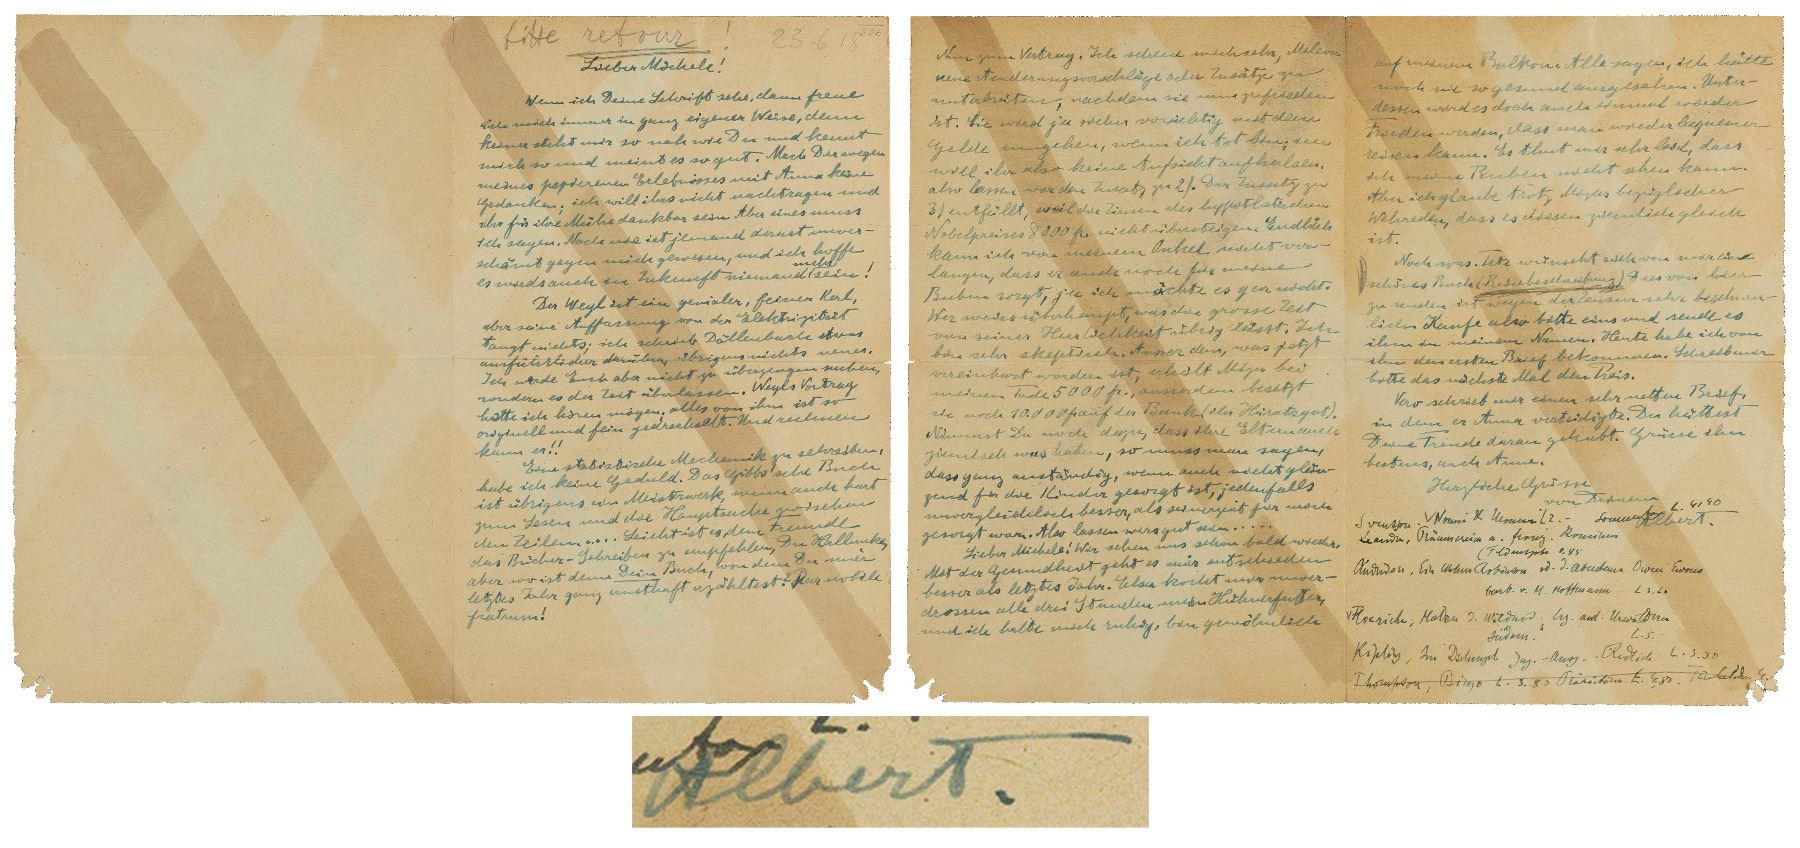 bitte retour! 23.6 18
Lieber Michele!
Wenn ich Deine Schrift sehe, dann freue
ich mich immer in ganz eigener Weise, denn
keiner steht mir so nah wie Du und kennt
mich so und meint es so gut. Mach Dir wegen
meines papierenen Erlebnisses mit Anna keine
Gedanken; ich will ihrs nicht nachtragen und
ihr für ihre Mühe dankbar sein. Aber eines muss
ich sagen. Noch nie ist jemand derart unver-
schämt gegen mich gewesen, und ich hoffe
es wirds auch in Zukunft niemand mehr sein!
Der Weyl ist ein genialer, feiner Kerl,
aber seine Auffassung von der Elektrizität
taugt nichts; ich schrieb Dällenbach etwas
ausführlicher darüber, übrigens nichts neues.
Ich werde Euch aber nicht zu überzeugen suchen,
sondern es der Zeit überlassen. Weyls Vortrag
hätte ich hören mögen. Alles von ihm ist so
originell und fein gedrechselt. Und rechnen
kann er!!
Eine statistische Mechanik zu schreiben,
habe ich keine Geduld. Das Gibbs'sche Buch
ist übrigens ein Meisterwerk, wenn auch hart
zum Lesen und die Hauptsache zwischen
den Zeilen..... Leicht ist es, dem Freunde
das Bücher-Schreiben zu empfehlen, Du Hallunke,
aber wo ist denn Dein Buch, von dem Du mir
letztes Jahr ganz ernsthaft erzähltest? Par nobile
fratrum!
Nun zum Vertrag. Ich scheue mich sehr, Maja
neue Änderungsvorschläge oder Zusätze zu
unterbreiten, nachdem sie nun zufrieden
ist. Sie wird ja sicher vorsichtig mit dem
Gelde umgehen, wenn ich tot bin;
will ihr also keine Aufsicht aufhalsen.
also lassen wir den Zusatz zu 2). Der Zusatz zu
3) entfällt, weil die Zinsen des hypothetischen
Nobelpreises 8000 fr. nicht übersteigen. Endlich
kann ich von meinem Onkel nicht ver-
langen, dass er auch noch für meine
Buben sorgt, ja ich möchte es gar nicht.
Wer weiss überhaupt, was die grosse Zeit
von seiner Herrlichkeit übrig lässt. Ich
bin sehr skeptisch. Ausser dem, was jetzt
vereinbart worden ist, erhält Miza bei
meinem Tode 5000 fr., ausserdem besitzt
sie noch 10.000 fr auf der Bank (ihr Heiratsgut).
Nimmst Du noch dazu, dass ihre Eltern auch
ziemlich was haben, so muss man sagen,
dass ganz anständig, wenn auch nicht glän-
zend für die Kinder gesorgt ist, jedenfalls
unvergleichlich besser, als seinerzeit für mich
gesorgt war. Also lassen wirs gut sein.....
Lieber Michele! Wir sehen uns schon bald wieder.
Mit der Gesundheit geht es mir entschieden
besser als letztes Jahr. Elsa kocht mir unver-
drossen alle drei Stunden mein Hühnerfutter,
und ich halte mich ruhig, bin gewöhnlich
auf meinem Balkon. Alle sagen, ich hätte
noch nie so gesund ausgesehen. Unter-
dessen wird es doch auch einmal wieder
Frieden werden, dass man wieder bequemer
reisen kann. Es thut mir sehr leid, dass
ich meine Buben nicht sehen kann.
Aber ich glaube trotz Mizas bezüglicher
Wehreden, dass es diesen ziemlich gleich
ist.
Noch was. Tete wünscht sich von mir ein
schönes Buch (Reisebeschreibung) Dies von hier
zu senden ist wegen der Zensur sehr beschwer-
lich. Kaufe also bitte eins und sende es
ihm in meinem Namen. Heute habe ich von
ihm den ersten Brief bekommen. Schreib mir
bitte das nächste Mal den Preis.
Vero schrieb mir einen sehr netten Brief,
in dem er Anna verteidigte. Du hättest
Deine Freude daran gehabt. Grüsse ihn
bestens, auch Anna.
Herzliche Grüsse
von Deinem
Albert.
Svensson, Nonni L. 4,90
Anderson
bearb. v. H. Hoffmann
Kipling, Im Dschungel L. 3.
Thompson, Bingo L. 3.80
Albert.